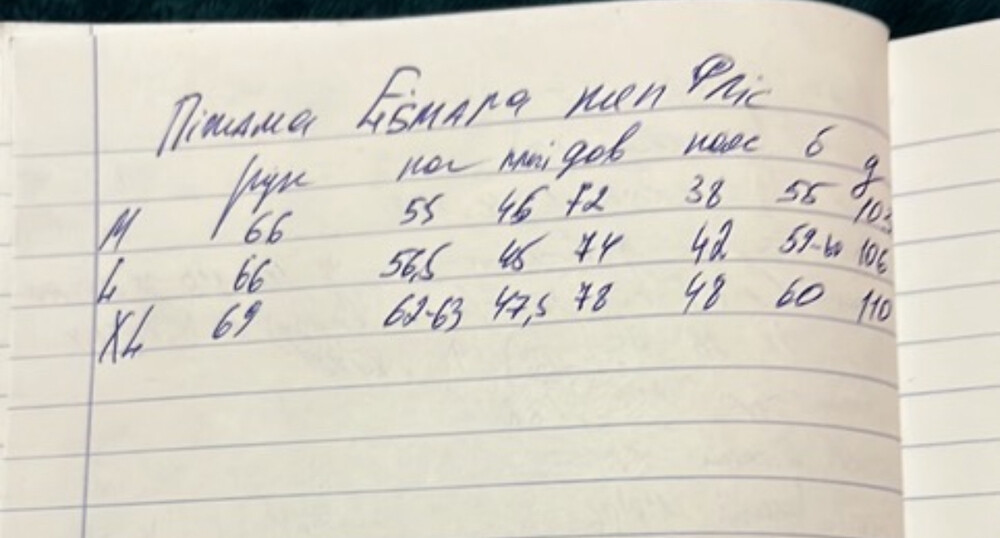 Піжама жеп Фліс
рук пог плеч дов пояс б д
M 66 55 46 72 38 55 103
L 66 56,5 45 74 42 59-60 106
XL 69 62-63 47,5 78 48 60 110